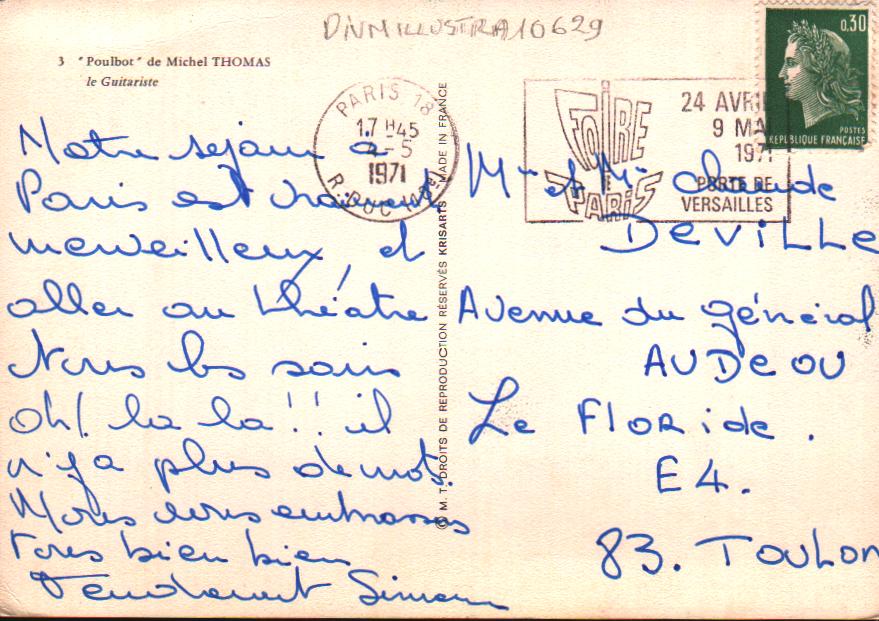 DIVMILLUSTRA10629
3 "Poulbot" de Michel THOMAS
le Guitariste
PARIS 18
17 H45
4-5
1971
R. DUC (18e)
FOIRE
DE
PARIS
24 AVRIL
9 MAI
1971
PORTE DE
VERSAILLES
0,30
POSTES
REPUBLIQUE FRANÇAISE
© M. T. DROITS DE REPRODUCTION RÉSERVÉS KRISARTS - MADE IN FRANCE
Notre séjour à
Paris est vraiment
merveilleux, et
aller au théâtre
tous les soirs
oh! la la!! il
n'y a plus de mots.
Nous vous embrassons
tous bien bien
Tendrement
Mme et Mr Claude
DEVILLE
Avenue du général
AUDEOU
Le FLORide.
E4.
83. TOULON